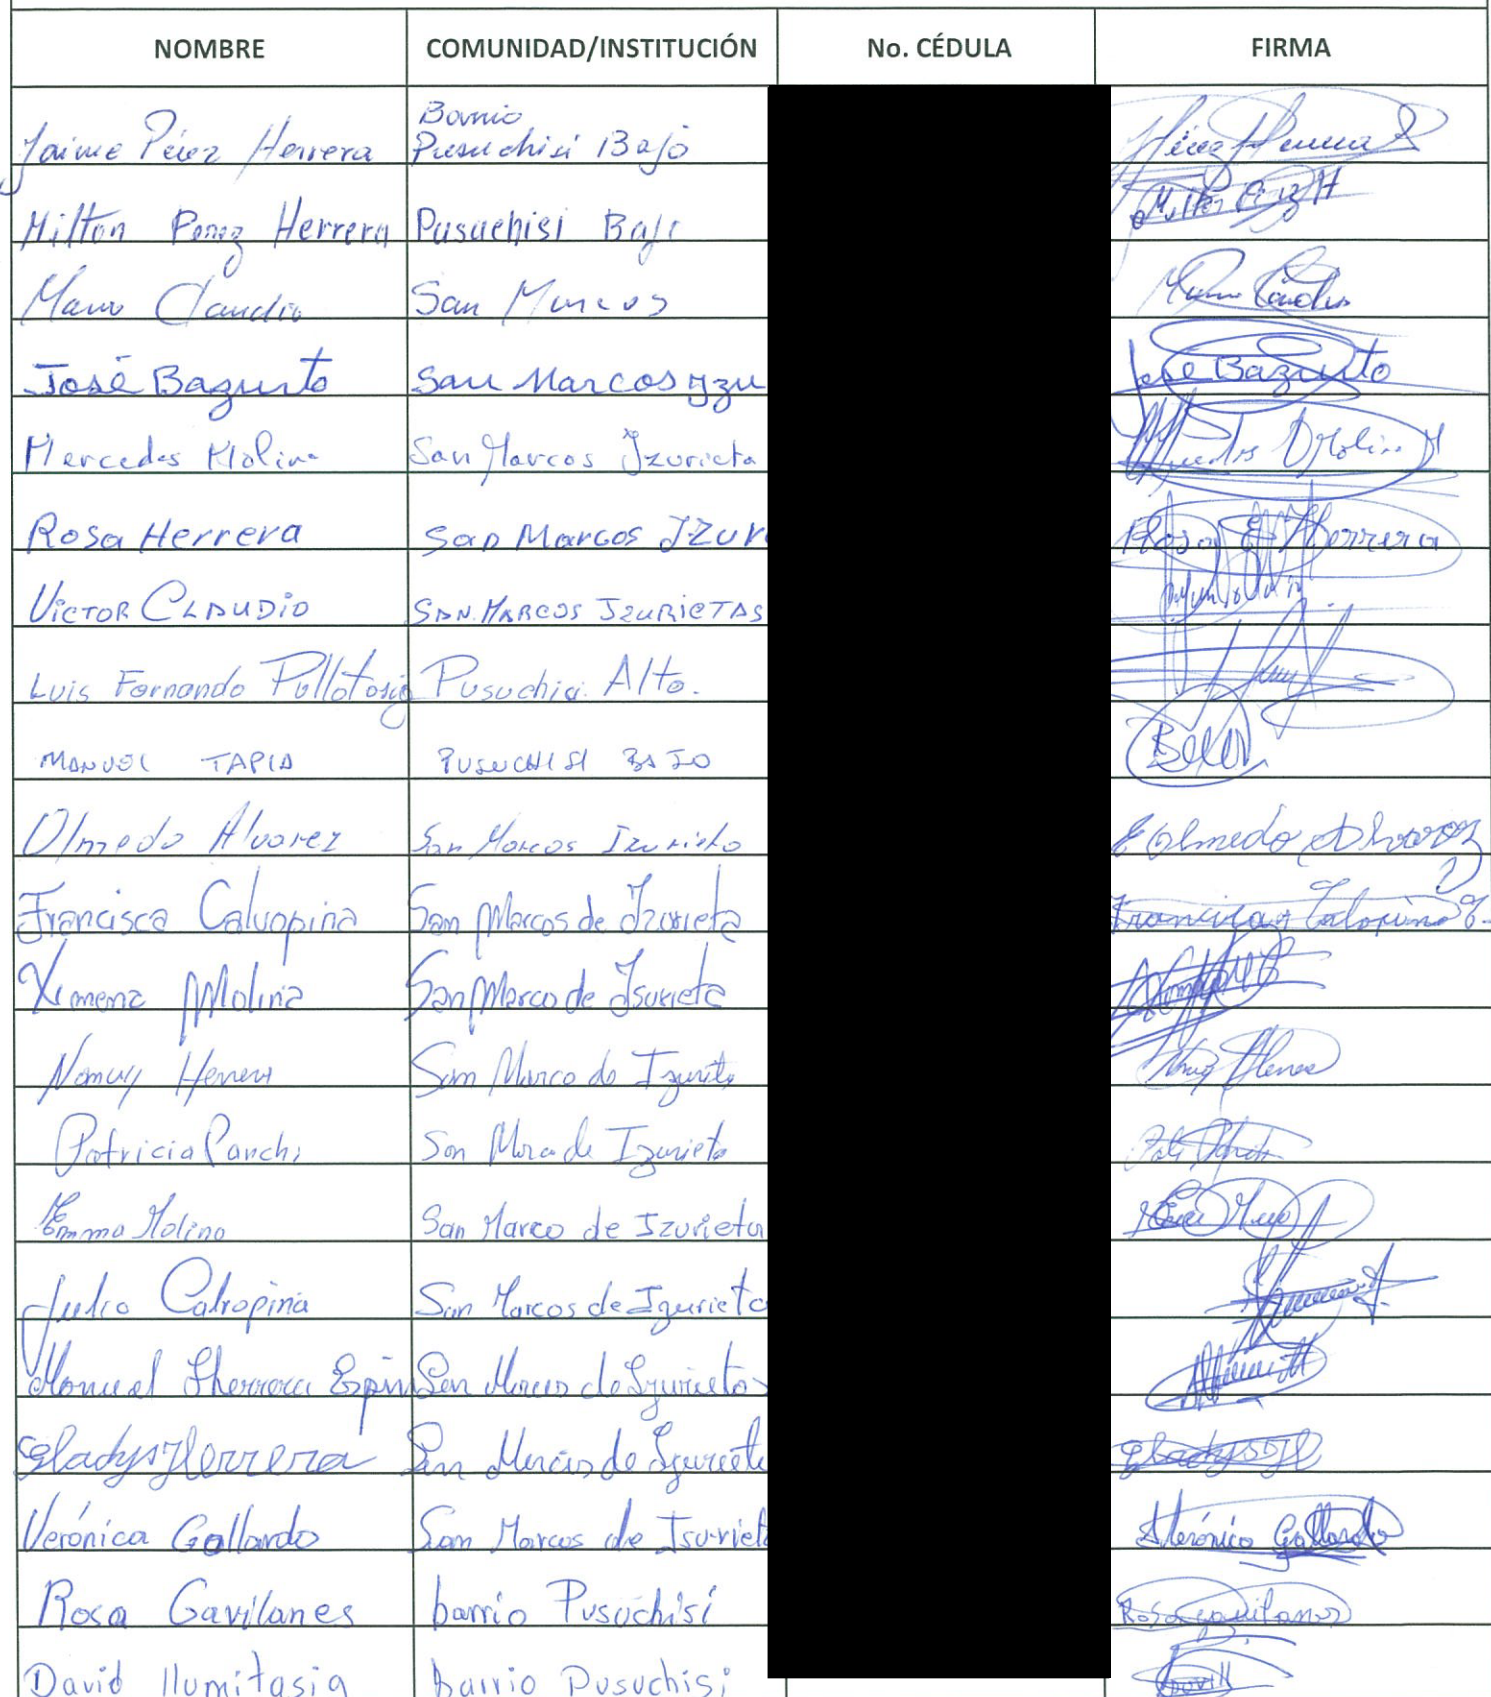 NOMBRE COMUNIDAD/INSTITUCIÓN No. CÉDULA FIRMA
Barrio
Jaime Pérez Herrera Pusuchisi Bajo Pérez Herrera
Milton Perez Herrera Pusuchisi Bajo Milton Perez H
Mario Claudio San Marcos
José Bazurto San Marcos yzu José Bazurto
Mercedes Molina San Marcos Izurieta Molina
Rosa Herrera San Marcos Izur Rosa E Herrera
VICTOR CLAUDIO SAN MARCOS IZURIETAS
Luis Fernando Pullotasig Pusuchisi Alto.
MANUEL TAPIA PUSUCHISI BAJO
Olmedo Alvarez San Marcos Izurieta E Olmedo Alvarez
Francisca Calvopiña San Marcos de Izurieta Francisca
Ximena Molina San Marco de Isurieta
Nancy Herrera San Marco de Izurieta
Patricia Panchi San Marco de Izurieta
Emma Molina San Marco de Izurieta
Julio Calvopiña San Marcos de Izurieta
Manuel Herrera Espin San Marcos de Izurieta
Gladys Herrera San Marcos de Izurieta Gladys H
Verónica Gallardo San Marcos de Isuriet Verónica Gallardo
Rosa Gavilanes barrio Pusuchisí Rosa gavilanes
David Ilumitasig barrio Pusuchisi